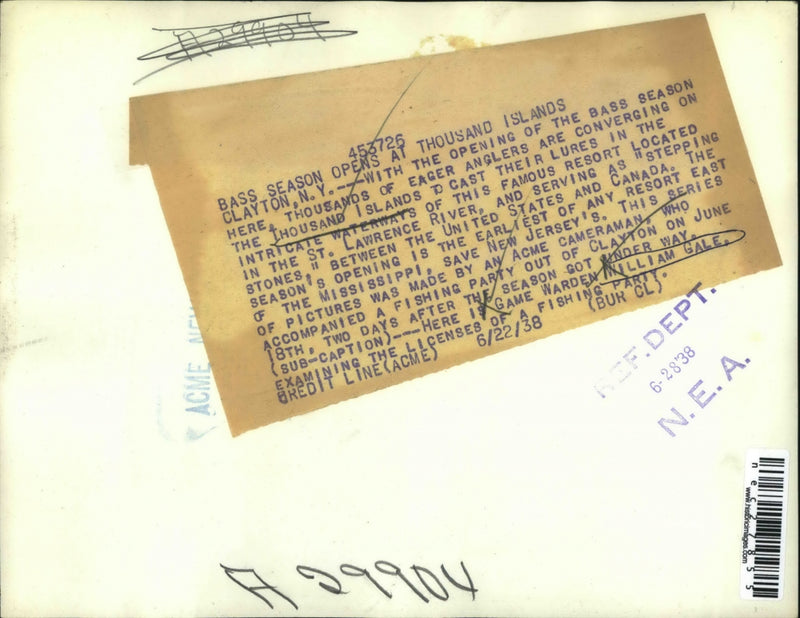 A29904
453726
BASS SEASON OPENS AT THOUSAND ISLANDS
CLAYTON, N.Y.---WITH THE OPENING OF THE BASS SEASON
HERE, THOUSANDS OF EAGER ANGLERS ARE CONVERGING ON
THE THOUSAND ISLANDS TO CAST THEIR LURES IN THE
INTRICATE WATERWAYS OF THIS FAMOUS RESORT LOCATED
IN THE ST. LAWRENCE RIVER, AND SERVING AS "STEPPING
STONES," BETWEEN THE UNITED STATES AND CANADA. THE
SEASON'S OPENING IS THE EARLIEST OF ANY RESORT EAST
OF THE MISSISSIPPI, SAVE NEW JERSEY'S. THIS SERIES
OF PICTURES WAS MADE BY AN ACME CAMERAMAN, WHO
ACCOMPANIED A FISHING PARTY OUT OF CLAYTON ON JUNE
18TH, TWO DAYS AFTER THE SEASON GOT UNDER WAY.
(SUB-CAPTION)---HERE IS GAME WARDEN WILLIAM GALE,
EXAMINING THE LICENSES OF A FISHING PARTY.
CREDIT LINE(ACME) 6/22/38 (BUR CL)
ACME NEW
REF. DEPT.
6-28'38
N.E.A.
nec27855
www.historicimages.com
A29904